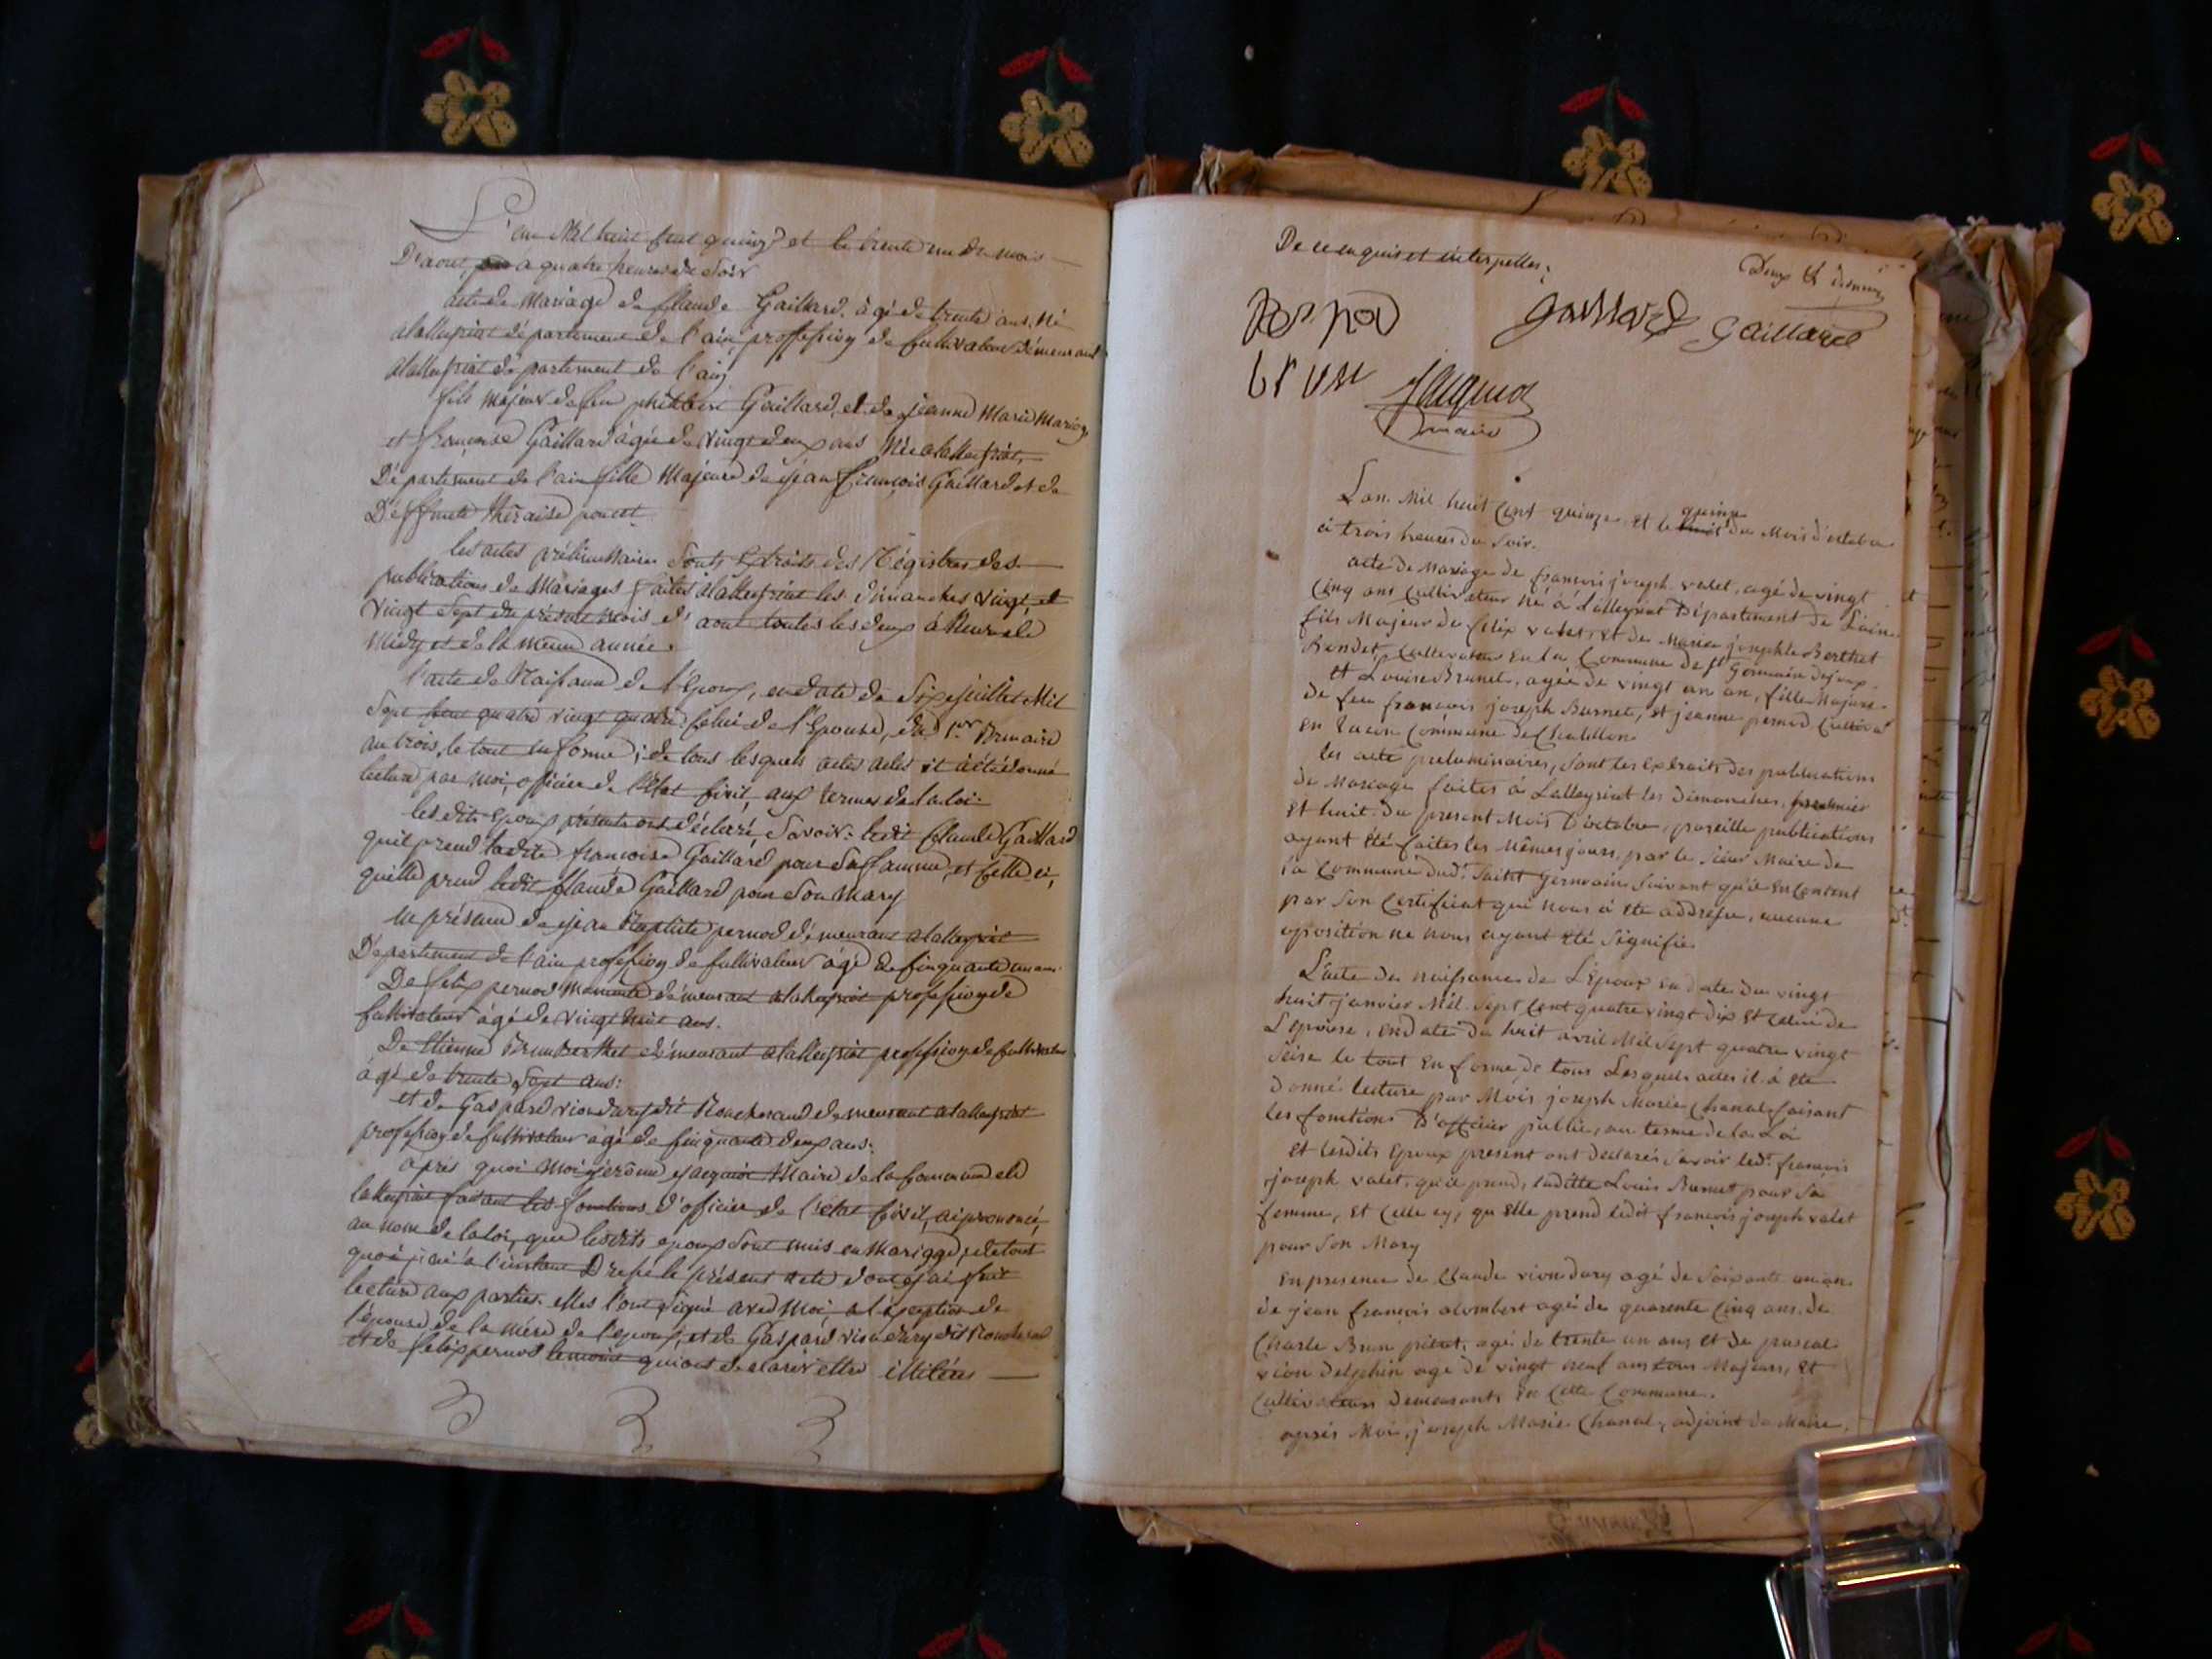 L'an Mil huit cent quinze et le trente un du mois
D'aout, a quatre heures du Soir
acte de Mariage de Claude Gaillard, âgé de trente ans, né
alalleyriat département de l'ain, proffession de Cultivateur démeurant
alalleyriat département de l'ain
fils Majeur de feu philibert Gaillard, et de jeanne Marie
et françoise Gaillard âgée de vingt deux ans Née alalleyriat,
Département de l'ain fille Majeure de jean françois Gaillard et de
Deffunte théraise
les actes préliminaires Sonts Extraits des Régistres des
publications de Mariages faites alalleyriat les dimanches vingt, et
vingt Sept du présent Mois d'aout toutes les deux à heure de
Midy et de la meme année.
l'acte de Naissance de l'Epoux, en date du Six juillet Mil
Sept Cent quatre vingt quatre Celui de l'Epouse, du 1er Brumaire
an trois, le tout en forme; de tous lesquels actes actes il à été donné
lecture par Moi, officier de l'Etat Civil, aux termes de la loi.
lesdits Epoux présents ont déclaré Savoir: ledit Claude Gaillard
quil prend ladite françoise Gaillard pour Sa famme, et Celle ci,
quelle prend ledit Claude Gaillard pour Son Mary
en présence de jean Baptiste pernod démeurant alalleyriat
Département de l'ain profession de Cultivateur âgé de Cinquante un ans.
De felix pernod démeurant alalleyriat profession de
Cultivateur âgé de vingt huit ans.
De Etienne Brun Berthet démeurant alalleyriat profession de Cultivateur
âgé de trente Sept ans:
et de Gaspard viondury dit demeurant alalleyriat
profession de Cultivateur âgé de Cinquante deux ans.
après quoi Moi jérôme jacquiot Maire de la Commune de
lalleyriat faisant les fonctions d'officier de l'état Civil, ai prononcé,
au nom de la loi, que lesdits epoux Sont unis en Mariage, et de tout
quoi j'ai à l'instant Dressé le présent acte dont j'ai fait
lecture aux parties. elles l'ont Signé avec Moi, a l'exception de
l'épouse de la Mère de l'epoux, et de Gaspard viondury dit
et de felix pernod temoins qui ont déclaré etre illitérés
De ce enquis et interpellés.
Deux &
gaillard Gaillard
brun jacquiot
maire
L'an Mil huit Cent quinze Et le quinze du Mois d'octobre
à trois heures du Soir.
acte de Mariage de françois joseph valet, agé de vingt
Cinq ans Cultivateur né à Lalleyriat Département de L'ain.
fils Majeur de felix valet, et de Marie josephte Berthet
Bondet, Cultivateur en la Commune de St Germain dejoux.
et Louise Brunet, agée de vingt un an, fille Majure
de feu françois joseph Burnet, et jeanne pernod Cultiva
en Commune de Chatillon
les acte preluminaires, Sont les Extraits des publications
de Mariage faites à Lalleyriat les dimanches, premier
Et huit du present Mois D'octobre, pareille publications
ayant été faites les Mêmes jours, par le Sieur Maire de
la Commune dud. Saint Germain Suivant qu'il en Contest
par Son Certificat qui nous à été addressé, aucune
oposition ne nous ayant été Signifié.
L'acte de naissance de L'Epoux en date du vingt
huit janvier Mil Sept Cent quatre vingt dix et Celui de
L'epouse, en date du huit avril Mil Sept quatre vingt
Seise le tout En forme, de tous Lesquels actes il à été
donné lecture par Mois joseph Marie Chanal faisant
les fonctions D'officier publie, au terme de la Loi
Et lesdits Epoux present ont declarés Savoir led. françois
joseph valet, qu'il prend, laditte Louise Burnet pour Sa
femme, Et Celle cy, qu'Elle prend ledit françois joseph valet
pour Son Mary
En presence de Claude viondury agé de Soixante un an.
de jean françois alombert agé de quarente Cinq ans. de
Charle Brun agé de trente un ans et de pascal
vion delphin agé de vingt neuf ans tous Majeurs, Et
Cultivateurs demeurants En Cette Commune.
après Moi, joseph Marie Chanal, adjoint du Maire.